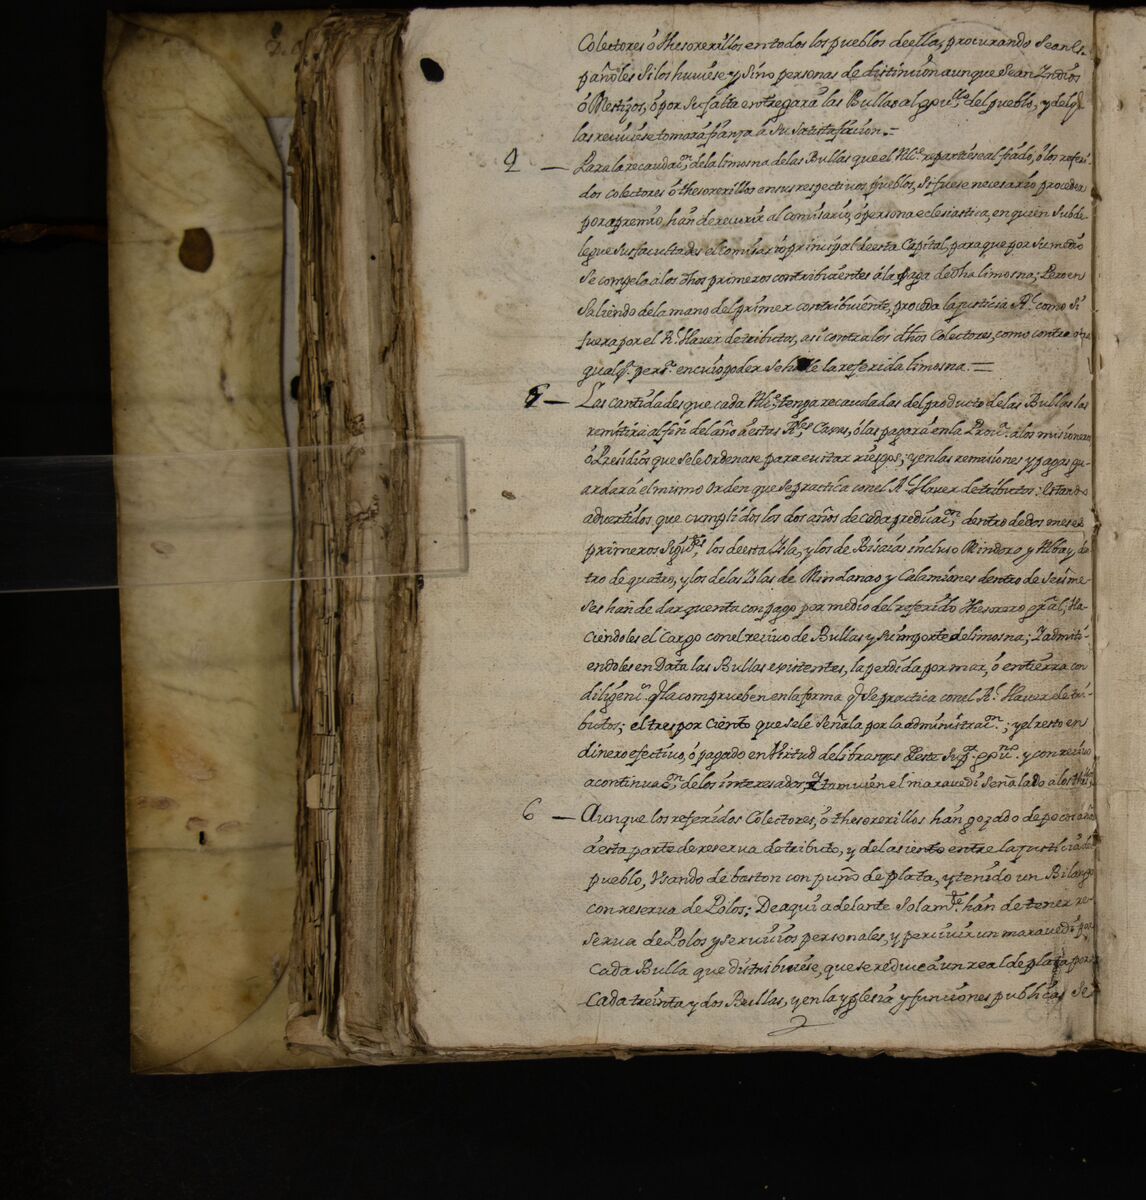 Colectores ó thesorerillos en todos los pueblos de ella, procurando sean Es-
pañoles si los huuiese y sino personas de distincion aunque sean Yndios
ó Mestizos, ó por su falta entregará las Bullas al del pueblo, y del q.
las reciuiese tomará fianza á su satisfaccion.=
— Para la recaudaz.n de la limosna de las Bullas que el Alc.e repartiese al fiado, ó los referi-
dos colectores ó thesorerillos en sus respectiuos pueblos, si fuese necesario proceder
por apremio, han de recurrir al comisario, ó persona eclesiastica, en quien subde-
legue sus facultades el comisario principal de esta Capital, para que por su medio
se compela a los dhos primeros contribuientes á la paga de dha limosna; Pero en
saliendo de la mano del primer contribuiente, proceda la justicia R.l como si
fuera por el R.l Hauer de tributos, asi contra los dhos Colectores, como contra
qualq.r pers.a en cuio poder se halle la referida limosna. =
— Las cantidades que cada Alc.e tenga recaudadas del producto de las Bullas las
remitirá al fin del año á estas R.s Caxas, ó las pagará en la Prou.a a los misioneros
ó Presidios que se le ordenase para euitar riesgos; y en las remisiones y pagas gu-
ardará el mismo orden que se practica con el R.l Hauer de tributos: Estando
aduertidos, que cumplidos los dos años de cada predicaz.n, dentro de dos meses
primeros sigui.tes, los de esta Isla, y los de Bisaias incluso Mindoro y Albay, de
tro de quatro, y los de las Yslas de Mindanao y Calamianes dentro de seis me-
ses han de dar quenta con pago por medio del referido Thesorero gral; Ha-
ciendoles el Cargo con el reciuo de Bullas y su importe de limosna; Y admiti-
endoles en Data las Bullas existentes, la perdida por mar, ó en tierra con
diligenc.s q.e la comprueben en la forma q.e se practica con el R.l Hauer de tri-
butos; el tres por ciento que se le señala por la administraz.n; y el resto en
dinero efectiuo, ó pagado en Virtud de libranzas de este Sup.or gou.no y con reciuo
a continuaz.n de los interesados, Y tamuien el marauedi señalado a los
6 — Aunque los referidos Colectores, ó thesorerillos han gozado de pocos años
á esta parte de reserua de tributo, y del asiento entre la justicia del
pueblo, Usando de baston con puño de plata, y tenido un Bilango
con reserua de Polos; De aqui adelante solam.te han de tener re-
serua de Polos y seruicios personales, y perciuir un marauedi por
cada Bulla que distribuiese, que se reduce á un real de plata por
cada treinta y dos Bullas, y en la yglesia y funciones publicas se